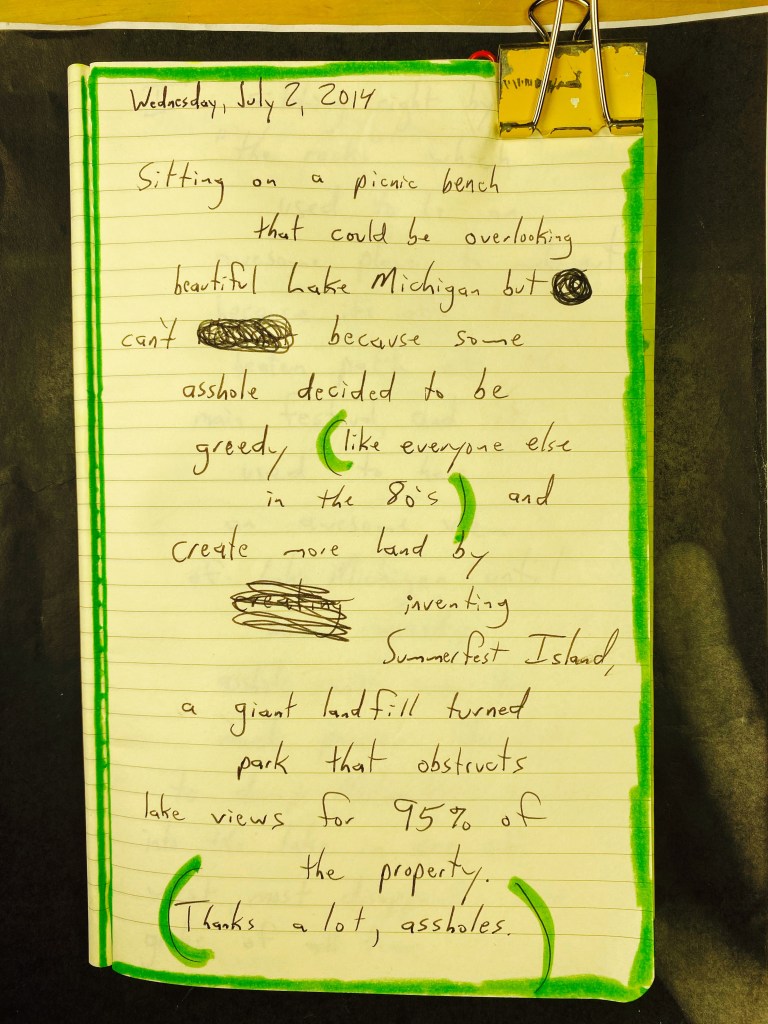 Wednesday, July 2, 2014
Sitting on a picnic bench
that could be overlooking
beautiful Lake Michigan but
can't because some
asshole decided to be
greedy (like everyone else
in the 80's) and
create more land by
creating inventing
Summerfest Island,
a giant landfill turned
park that obstructs
lake views for 95% of
the property.
(Thanks a lot, assholes.)